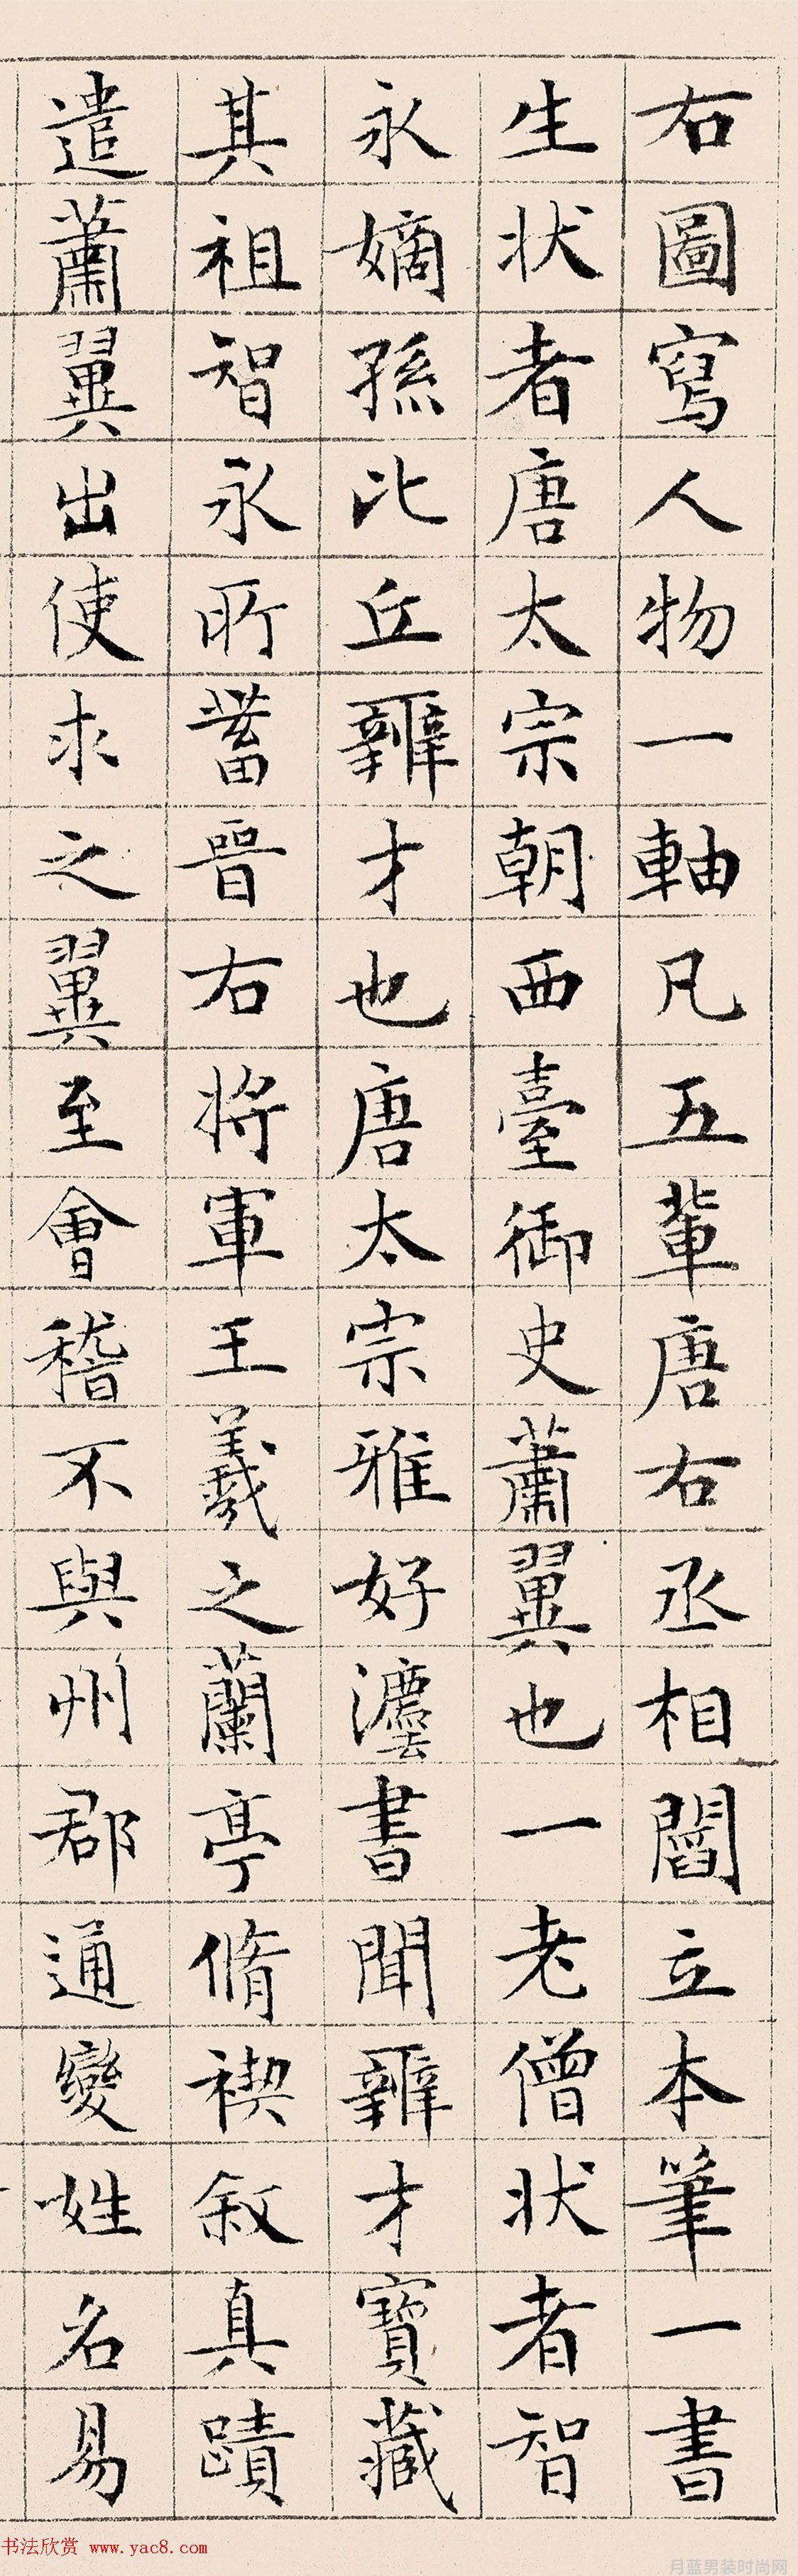 右圖寫人物一軸凡五輩唐右丞相閻立本筆一書
生狀者唐太宗朝西臺御史蕭翼也一老僧狀者智
永嫡孫比丘辯才也唐太宗雅好灋書聞辯才寶藏
其祖智永所蓄晉右將軍王羲之蘭亭脩禊敘真蹟
遣蕭翼出使求之翼至會稽不與州郡通變姓名易
书法欣赏 www.yac8.com
月蓝男装时尚网